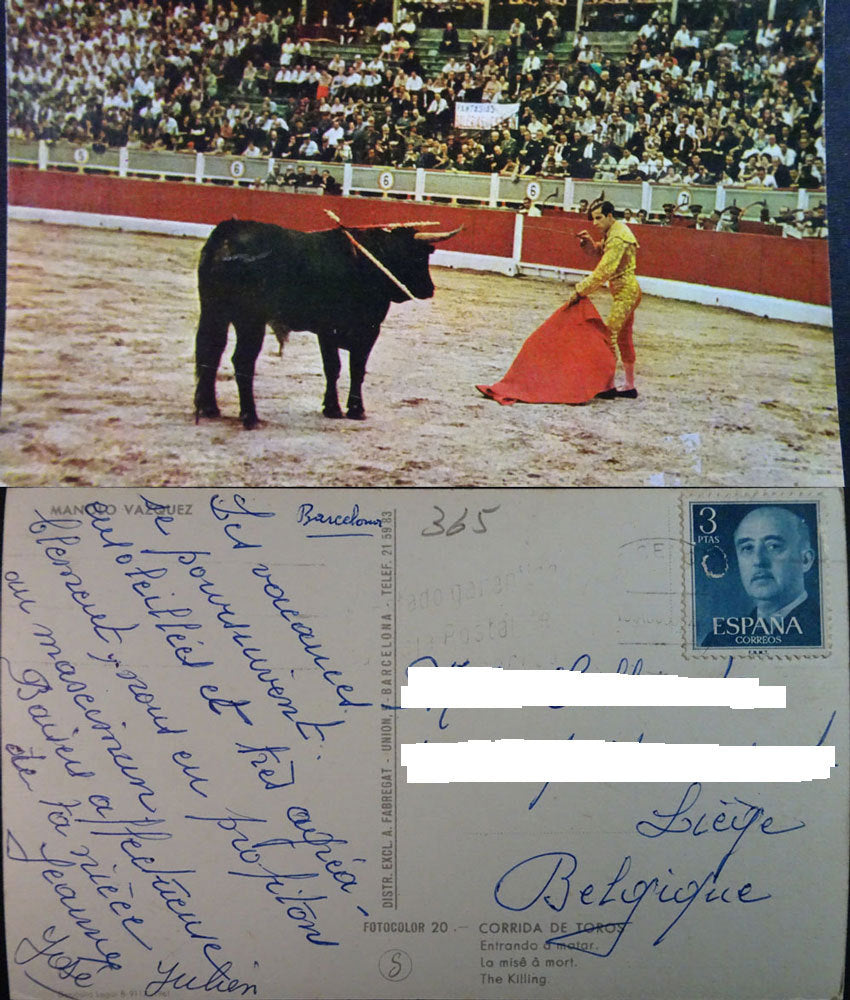 5
6
6
6
7
MANOLO VAZQUEZ
Barcelona
Les vacances
se poursuivent
ensoleillées et très agréa-
blement, nous en profiton
au maximum
Baisers affectueux
de ta nièce
Jeanne
José
Julien
DISTR. EXCL. A. FABREGAT - UNION, 7 - BARCELONA - TELEF. 21 59 83
365
3
PTAS
ESPAÑA
CORREOS
F.N.M.T.
Liège
Belgique
FOTOCOLOR 20 .— CORRIDA DE TOROS
Entrando á matar.
La misê â mort.
The Killing.
S